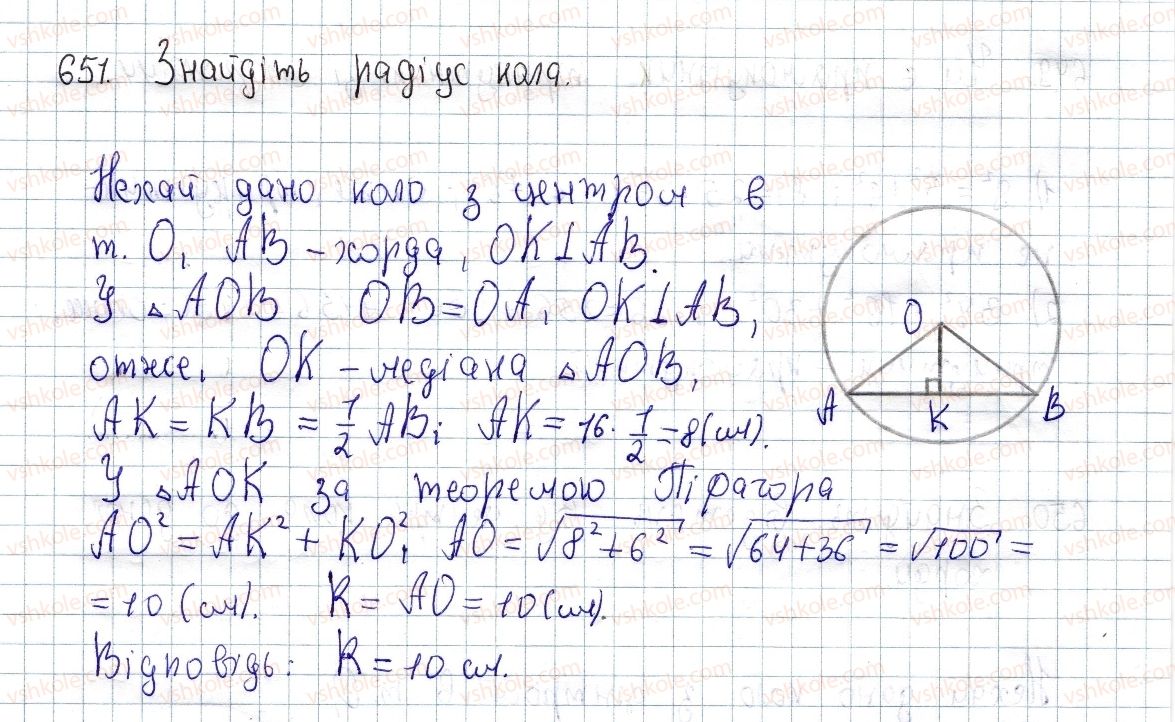 651. Знайдіть радіус кола.
Нехай дано коло з центром в
т. O, AB – хорда, OK⊥AB.
У △AOB OB = OA, OK⊥AB,
отже, OK – медіана △AOB,
AK = KB = 1/2 AB; AK = 16 · 1/2 = 8 (см).
У △AOK за теоремою Піфагора
AO² = AK² + KO², AO = √(8² + 6²) = √(64 + 36) = √100 =
= 10 (см). R = AO = 10 (см).
Відповідь: R = 10 см.
O
A K B
vshkole.com